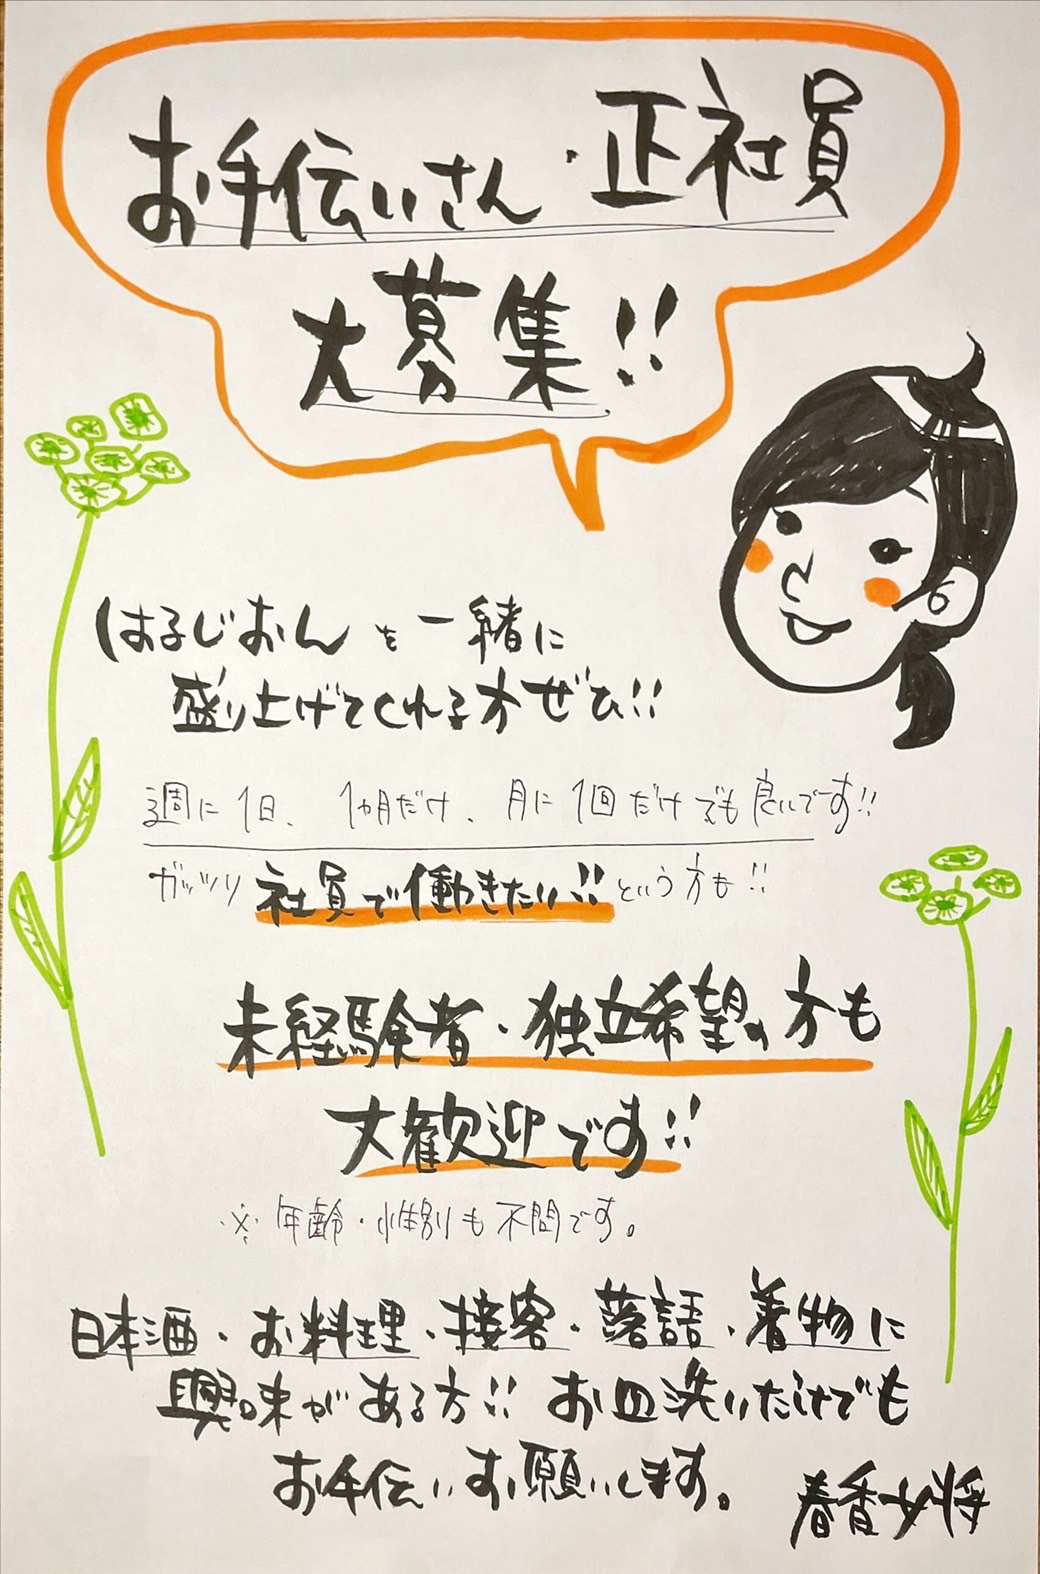 お手伝いさん・正社員
大募集!!
はるじおんを一緒に
盛り上げてくれる方ぜひ!!
週に1日、1ヵ月だけ、月に1回だけでも良いでーす!!
ガッツリ社員で働きたい!!という方も!!
未経験者・独立希望の方も
大歓迎です!!
※年齢・性別も不問です。
日本酒・お料理・接客・落語・着物に
興味がある方!!お皿洗いだけでも
お手伝いお願いします。
春香女将